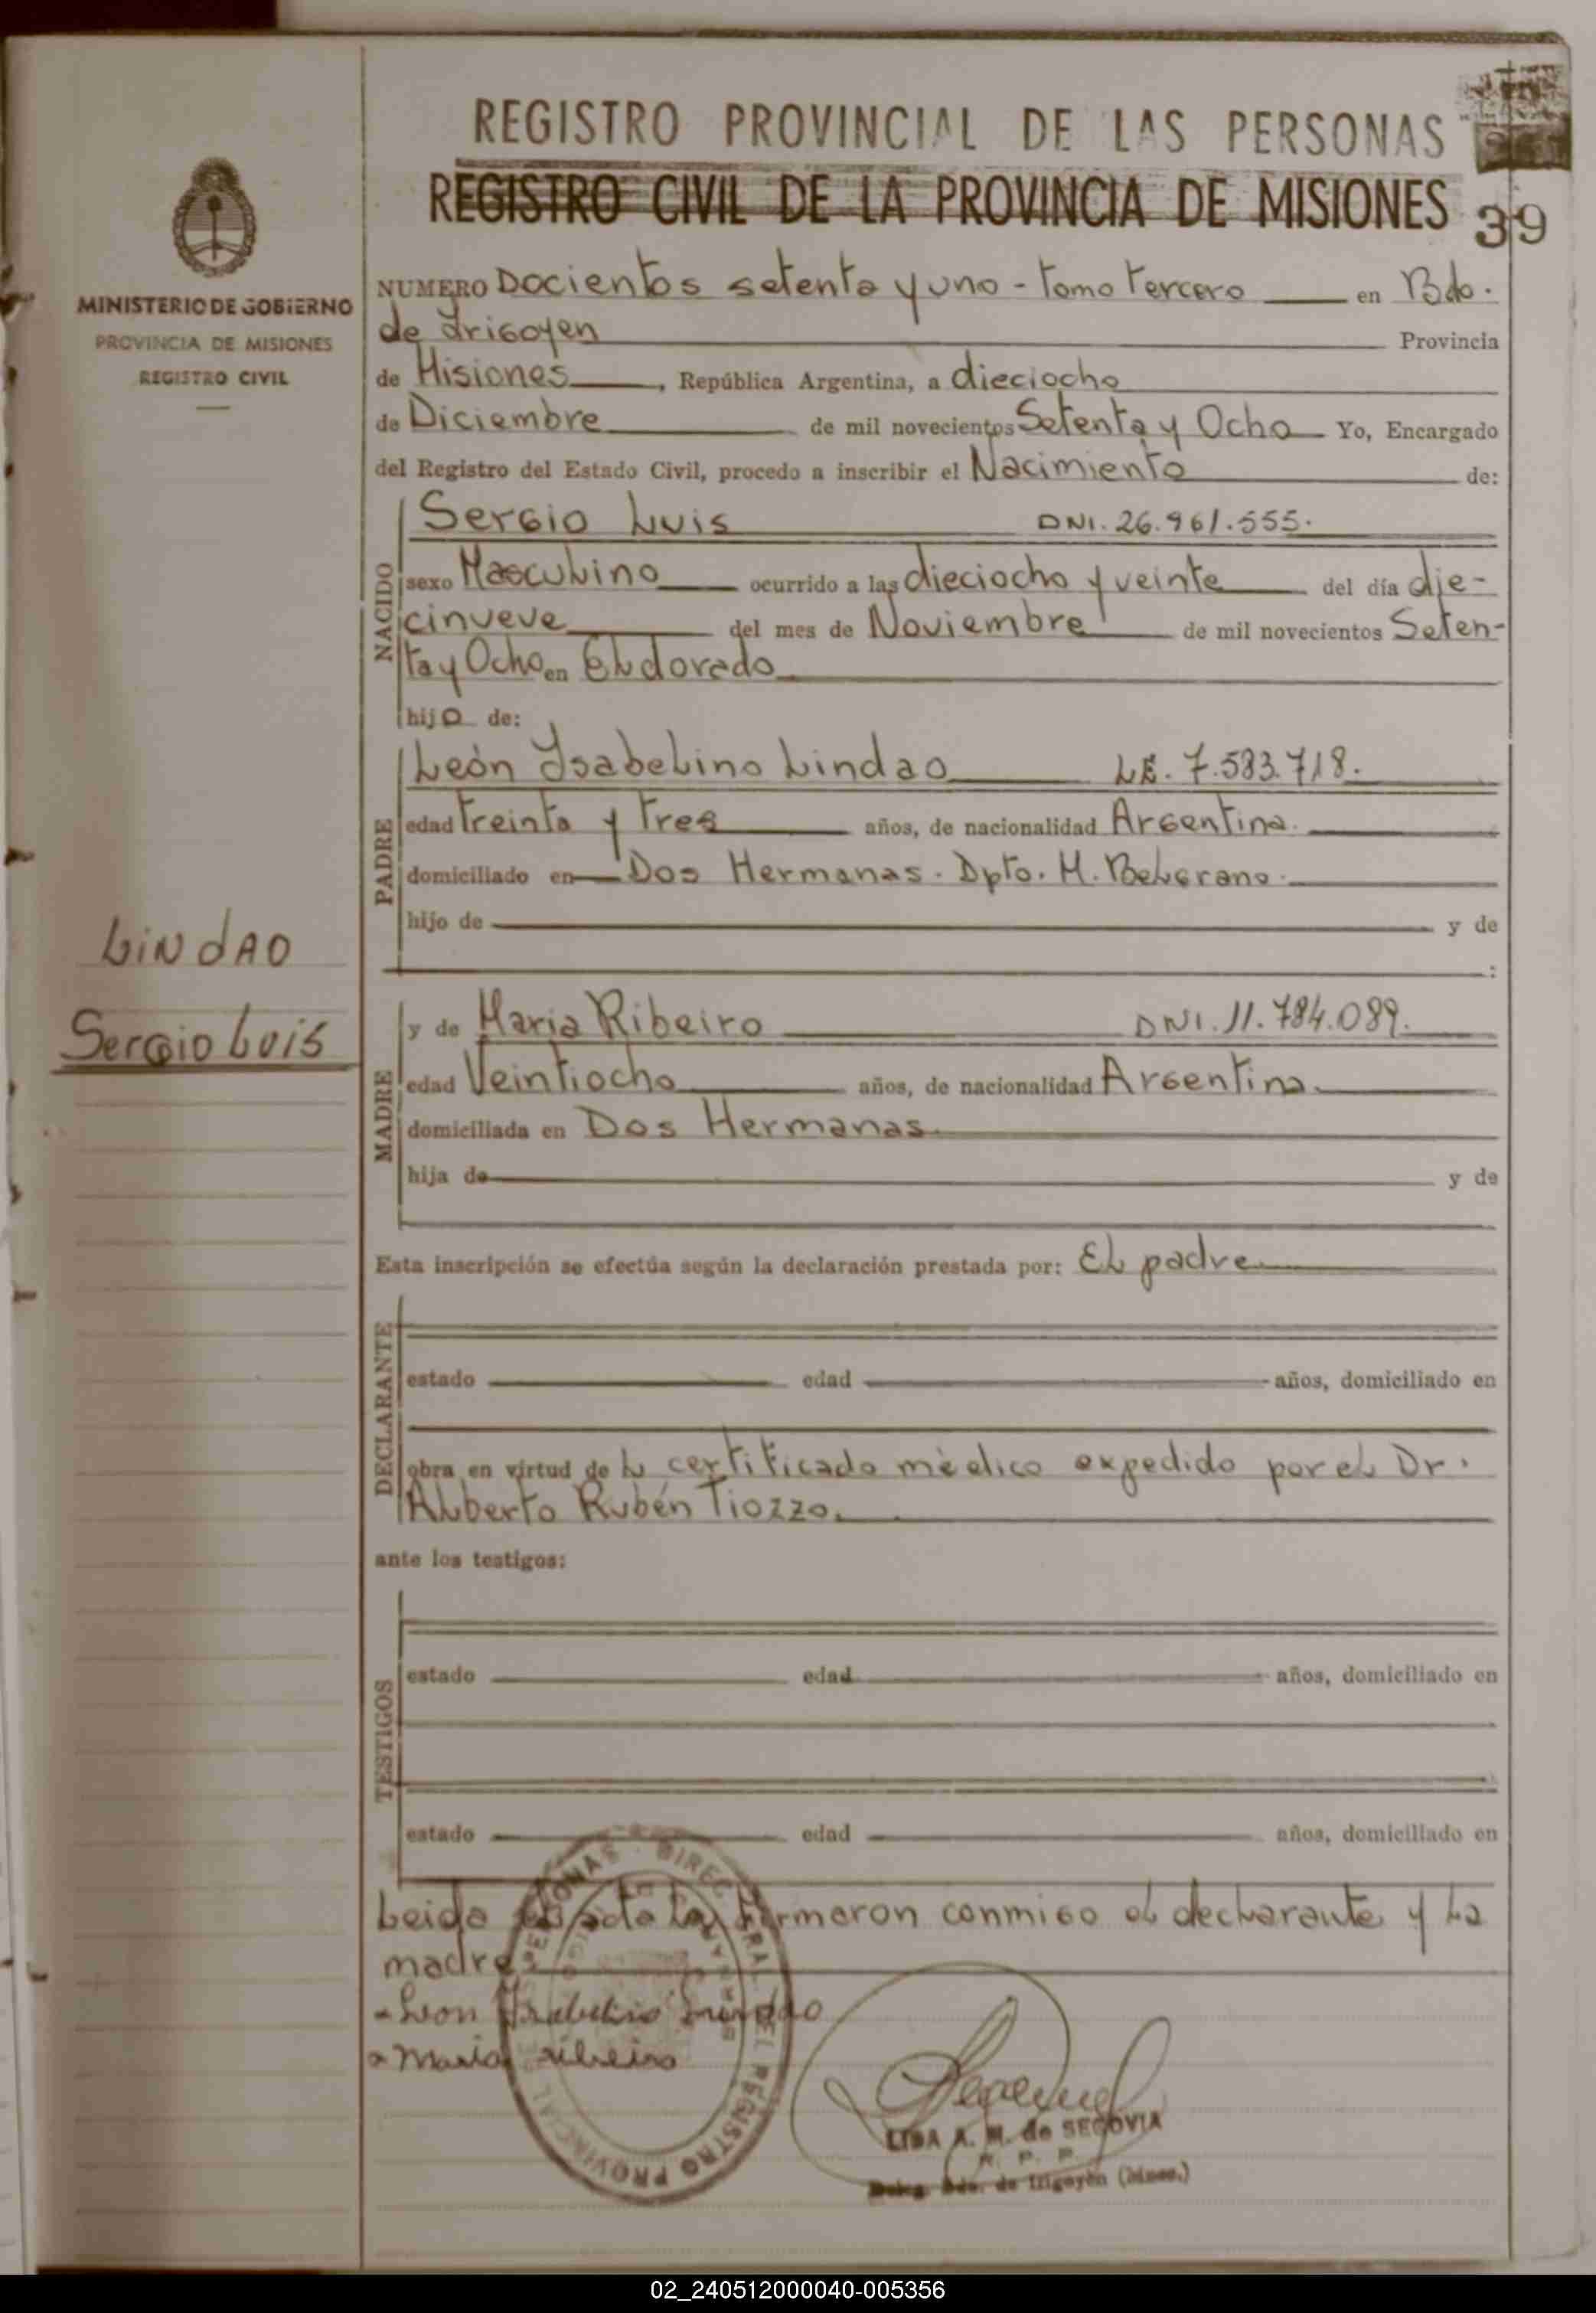 REGISTRO PROVINCIAL DE LAS PERSONAS
REGISTRO CIVIL DE LA PROVINCIA DE MISIONES
39
MINISTERIO DE GOBIERNO
PROVINCIA DE MISIONES
REGISTRO CIVIL
NUMERO Docientos setenta y uno - tomo tercero en Bdo.
de Irigoyen Provincia
de Misiones, República Argentina, a dieciocho
de Diciembre de mil novecientos Setenta y Ocho Yo, Encargado
del Registro del Estado Civil, procedo a inscribir el Nacimiento de:
NACIDO
Sergio Luis DNI. 26.961.555.
sexo Masculino ocurrido a las dieciocho y veinte del día die-
cinueve del mes de Noviembre de mil novecientos Seten-
ta y Ocho en Eldorado
hijo de:
PADRE
León Isabelino Lindao LE. 7.583.718.
edad treinta y tres años, de nacionalidad Argentina.
domiciliado en Dos Hermanas. Dpto. M. Belgrano.
hijo de y de
:
LINDAO
Sergio Luis
MADRE
y de Maria Ribeiro DNI. 11.784.089.
edad Veintiocho años, de nacionalidad Argentina.
domiciliada en Dos Hermanas.
hija de y de
Esta inscripción se efectúa según la declaración prestada por: El padre
DECLARANTE
estado edad años, domiciliado en
obra en virtud de l certificado mèdico expedido por el Dr.
Alberto Rubén Tiozzo.
ante los testigos:
TESTIGOS
estado edad años, domiciliado en
estado edad años, domiciliado en
Leida el acta la firmaron conmigo el declarante y la
madre
Leon Isabelino Lindao
Maria ribeiro
DIREC RAL DEL REGISTRO PROVINCIAL PERSONAS
LIDA A. M. de SEGOVIA
R. P. P.
Deleg. Bdo. de Irigoyen (Mnes.)
02_240512000040-005356